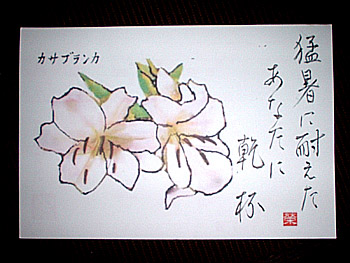 カサブランカ
猛暑に耐えた
あなたに
乾杯
榮